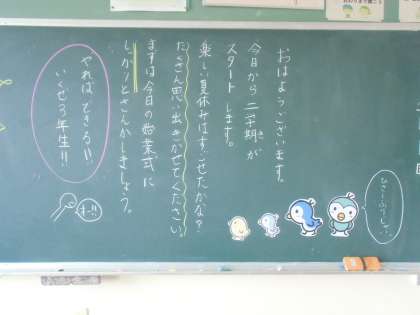 おはようございます。
今日から二学期が
スタートします。
楽しい夏休みはすごせたかな？
たくさん思い出きかせてください。
まずは今日の始業式に
しっかりとさんかしましょう。
やればできる!!
いくぜ3年生!!
オー!!